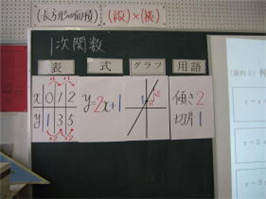 (長方形の面積) (縦)×(横)
1次関数
表 式 グラフ 用語
x 0 1 2
y 1 3 5
y=2x+1
傾き2
切片1